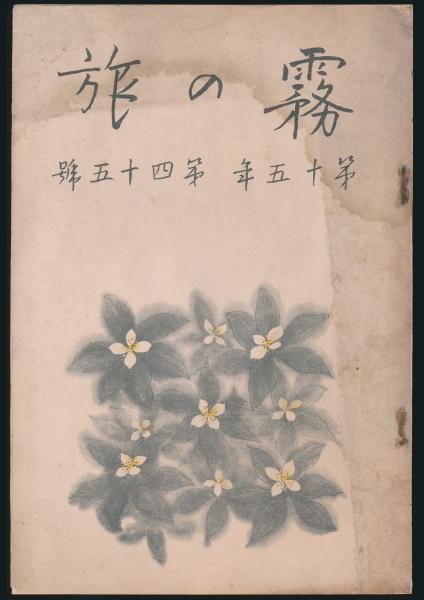 霧の旅
第十五年 第四十五號